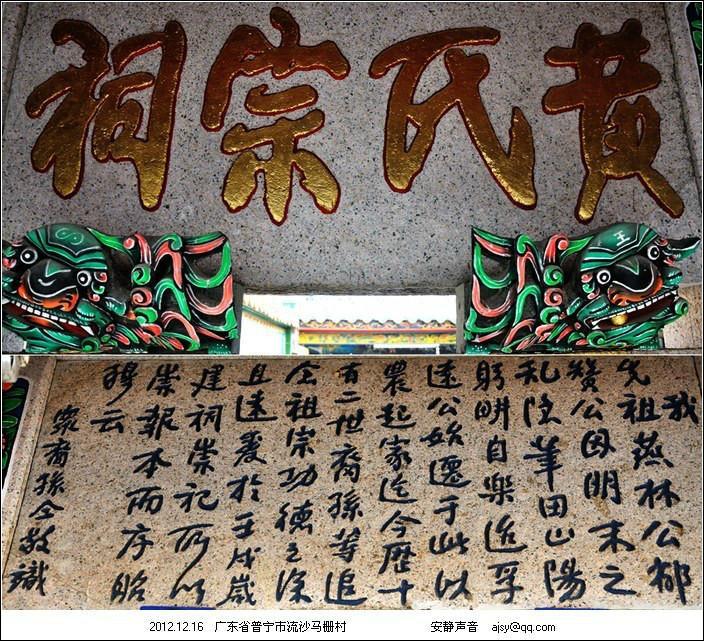 黄氏宗祠
王
我
先祖燕林公郁
赞公因明末之
乱隐筆田山陽
躬畊自樂迨孚
遠公始遷于此以
農起家迄今歷十
有二世裔孫等追
念祖宗功德之深
且遠爰於壬戌歲
建祠崇祀所以
崇報本而序昭
穆云
衆裔孫仝敬識
2012.12.16 广东省普宁市流沙马栅村 安静声音 ajsy@qq.com